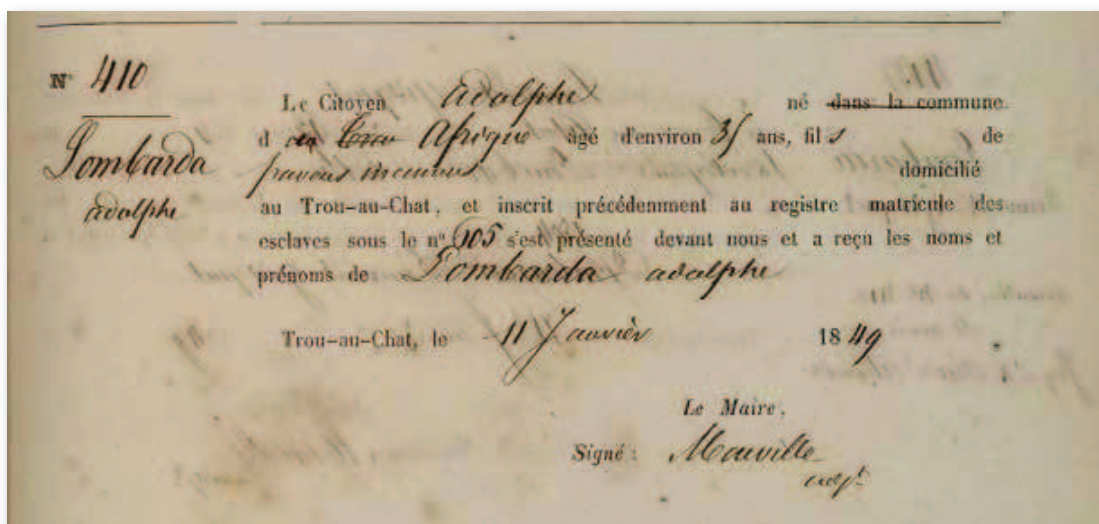 N° 410
Lombarda
adolphe
Le Citoyen adolphe né dans la commune
d en Afrique âgé d'environ 35 ans, fils de
domicilié
au Trou-au-Chat, et inscrit précédemment au registre matricule des
esclaves sous le n° 505 s'est présenté devant nous et a reçu les noms et
prénoms de Lombarda adolphe
Trou-au-Chat, le 11 Janvier 1849
Le Maire,
Signé : Mouville
adjt